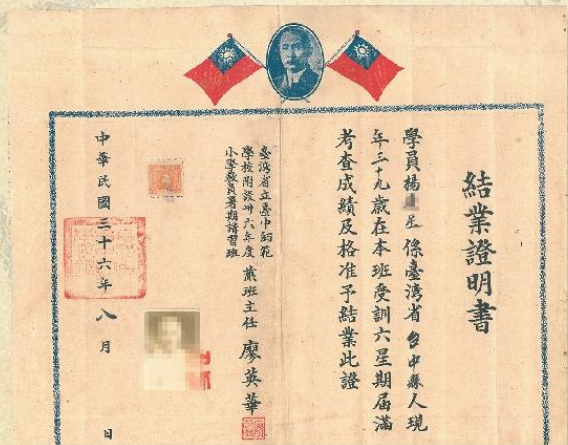 結業證明書
學員楊 星係臺灣省台中縣人現
年三十九歲在本班受訓六星期屆滿
考查成績及格准予結業此證
臺灣省立臺中師範
學校附設卅六年度
小學教員暑期講習班
兼班主任 廖英華
中華民國三十六年八月 日